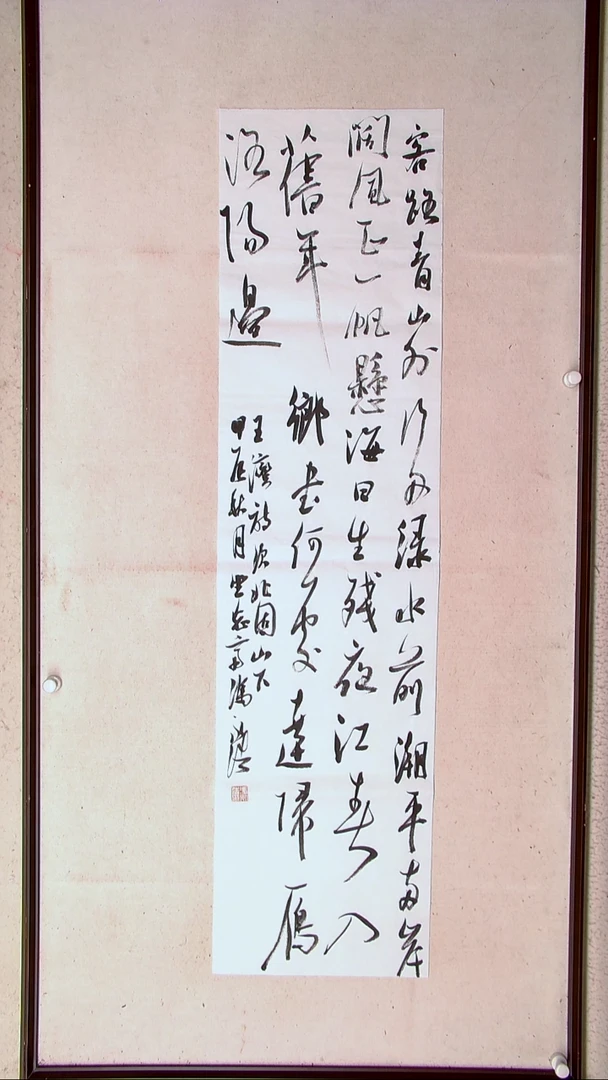 客路青山外行舟绿水前潮平两岸
闊風正一帆懸海日生殘夜江春入
舊年鄉書何處達歸雁
洛陽邊
王灣詩次北固山下
甲辰秋月坐忘齋